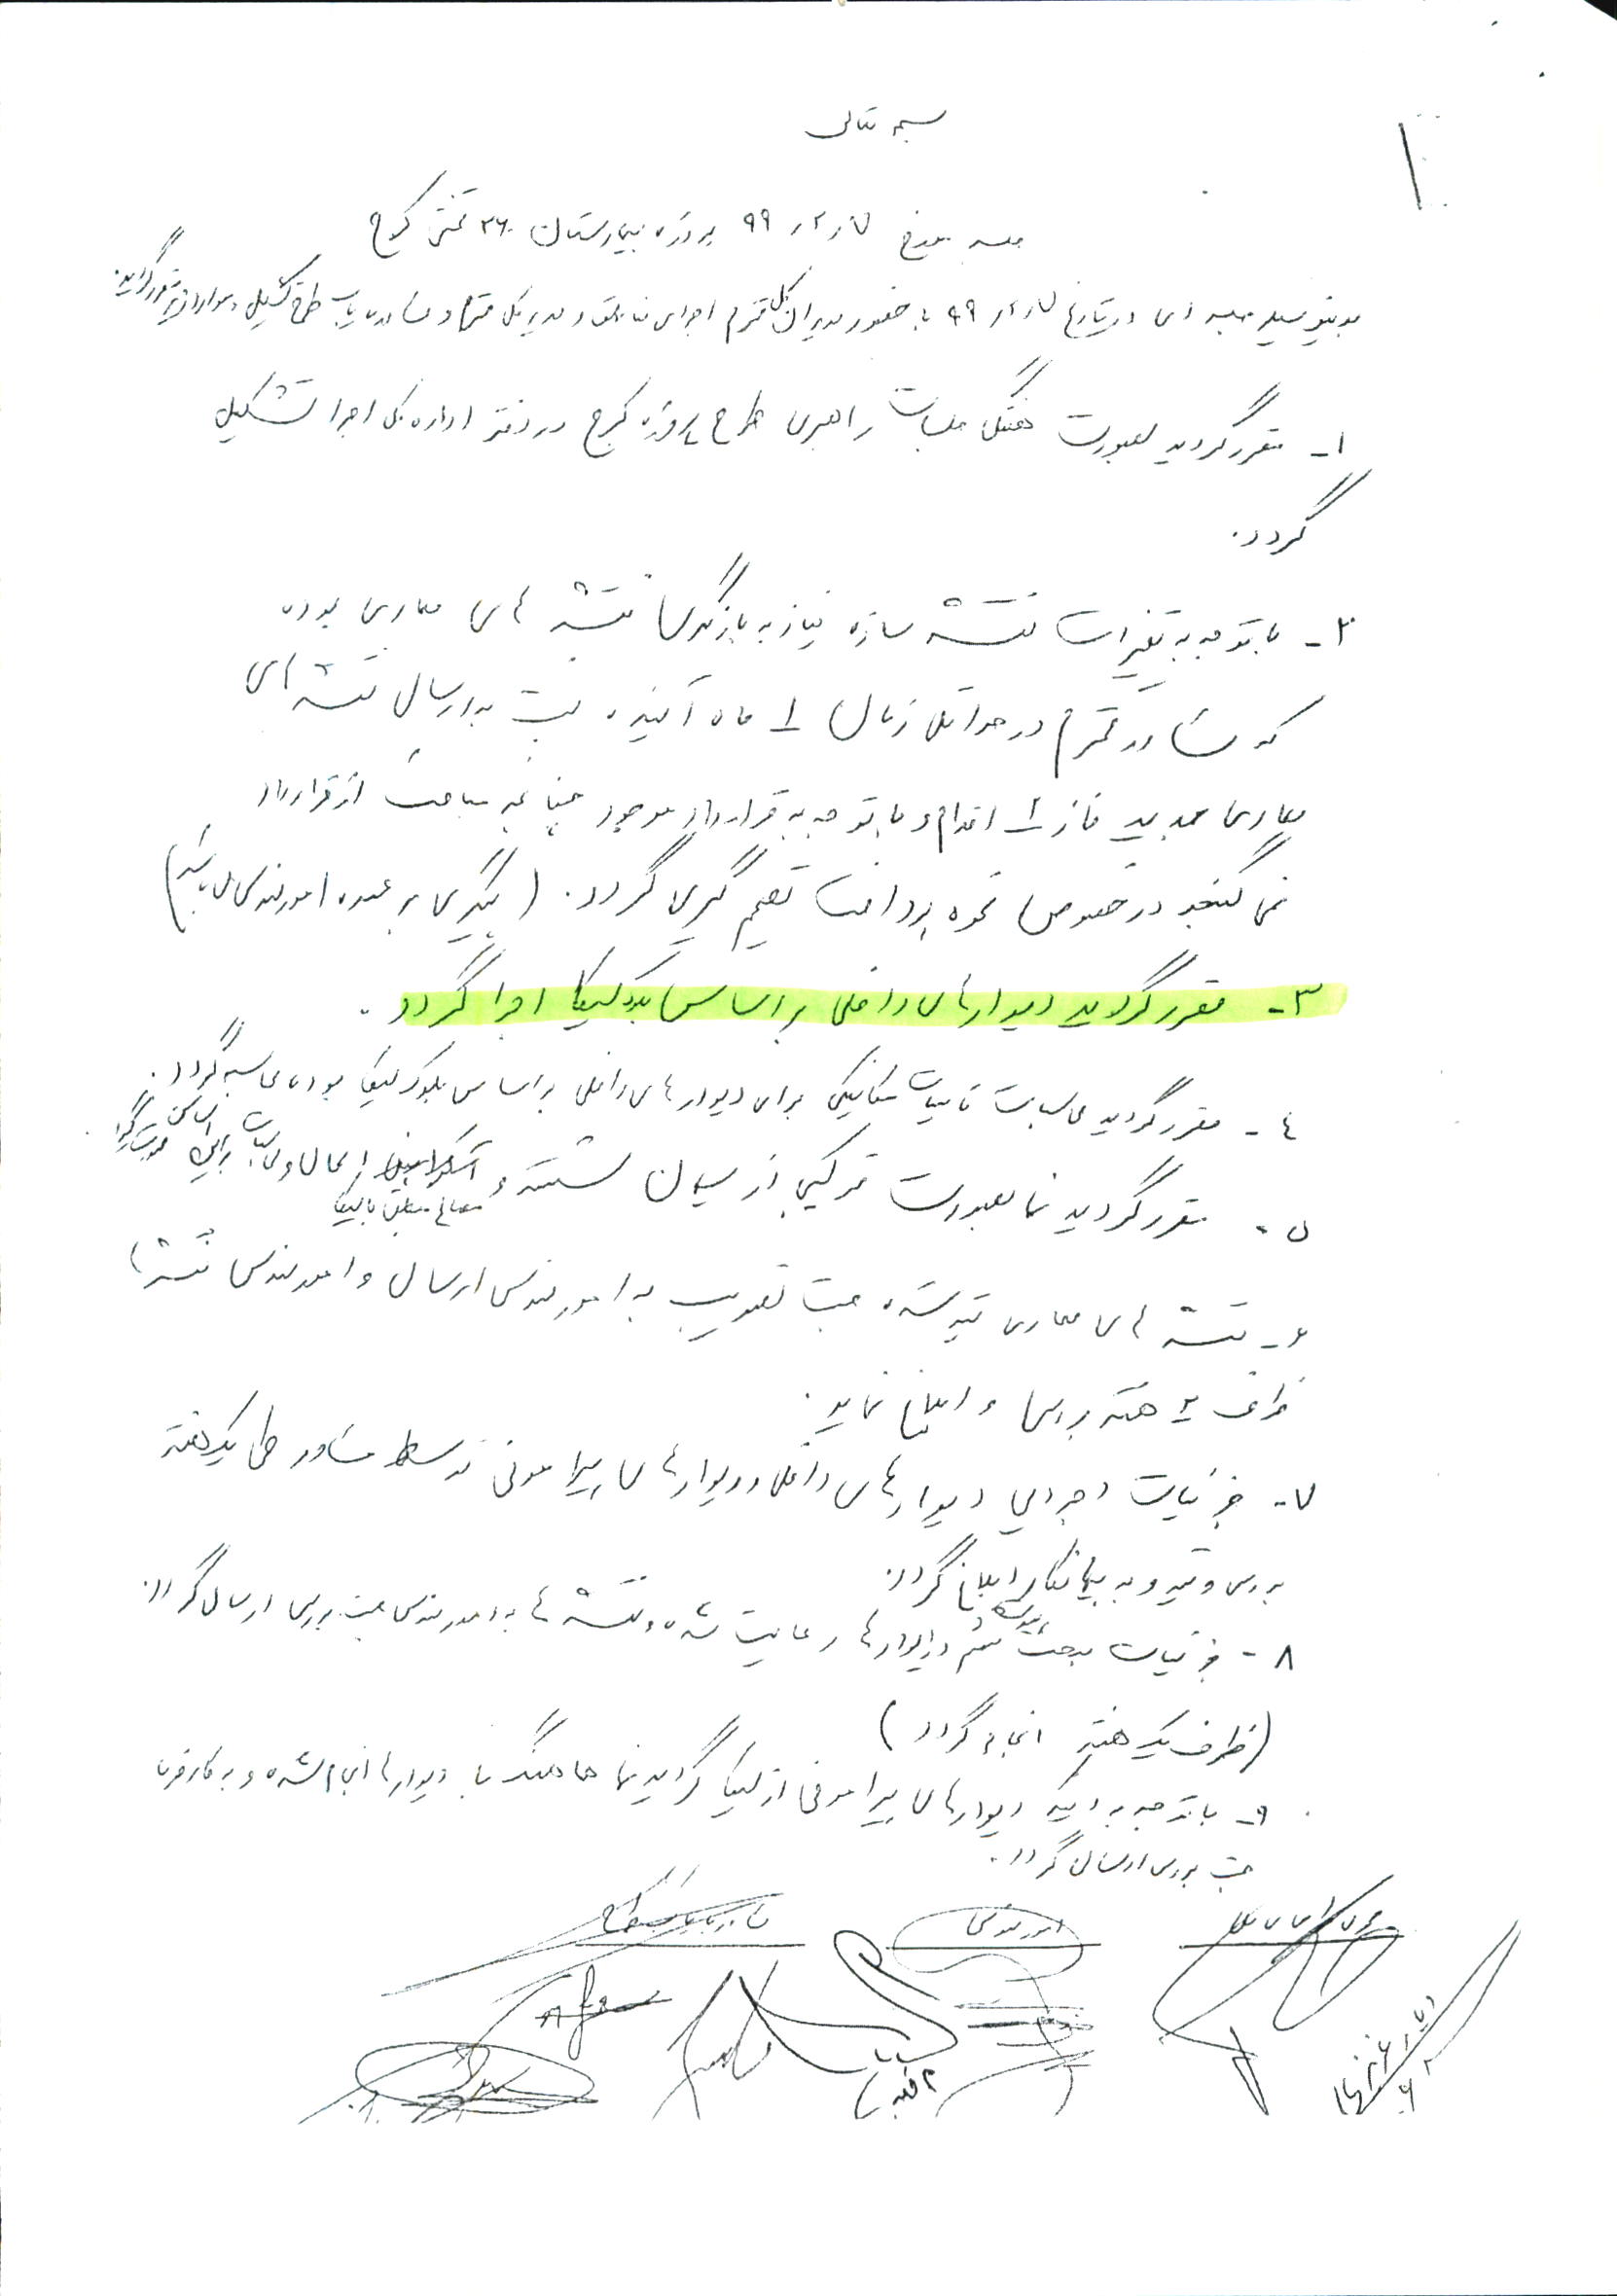 بسمه تعالی
جلسه مورخ ۹۹ پروژه بیمارستان ۲۶۰ تختی کرج
بدینوسیله جلسه ای در تاریخ ۹۹ با حضور مدیران کل محترم اجرای مناطق و مدیرکل محترم و مشاور بازیاب طرح تشکیل و موارد زیر مقرر گردید.
۱- مقرر گردید بصورت هفتگی جلسات راهبری طرح پروژه کرج در دفتر اداره کل اجرا تشکیل
گردد.
۲- با توجه به تغییرات نقشه سازه نیاز به بازنگری نقشه های معماری بوده
که مشاور محترم در حداقل زمان ۱ ماه آینده نسبت به ارسال نقشه های
معماری جدید فاز ۲ اقدام و با توجه به قرارداد موجود چنانچه مباحث از قرارداد
نمی گنجد در خصوص نحوه پرداخت تصمیم گیری گردد. (پیگیری بر عهده امور مهندسی می باشد)
۳- مقرر گردید دیوارهای داخلی بر اساس بلوک لیکا اجرا گردد.
۴- مقرر گردید محاسبات تاسیسات مکانیکی برای دیوارهای داخلی بر اساس بلوک لیکا بوده محاسبه گردد.
۵- مقرر گردید نما بصورت ترکیبی از سیمان شسته و اعمال و محاسبات براین اساس صورت گیرد.
مصالح مطابق با لیکا
۶- نقشه های معماری تهیه شده جهت تصویب به امور مهندسی ارسال و امور مهندسی نقشه ها
ظرف ۲ هفته بررسی و ابلاغ نماید.
۷- جزئیات اجرایی دیوارهای داخلی و دیوارهای پیرامونی توسط مشاور طی یک هفته
بررسی و تهیه و به پیمانکار ابلاغ گردد.
۸- جزئیات مبحث هشتم در دیوارها رعایت شده و نقشه ها به امور مهندسی جهت بررسی ارسال گردد.
(ظرف یک هفته انجام گردد)
۹- با توجه به اینکه دیوارهای پیرامونی از لیکا گردید نما هماهنگ با دیوارها انجام شده و به کارفرما
جهت بررسی ارسال گردد.
امور مهندسی